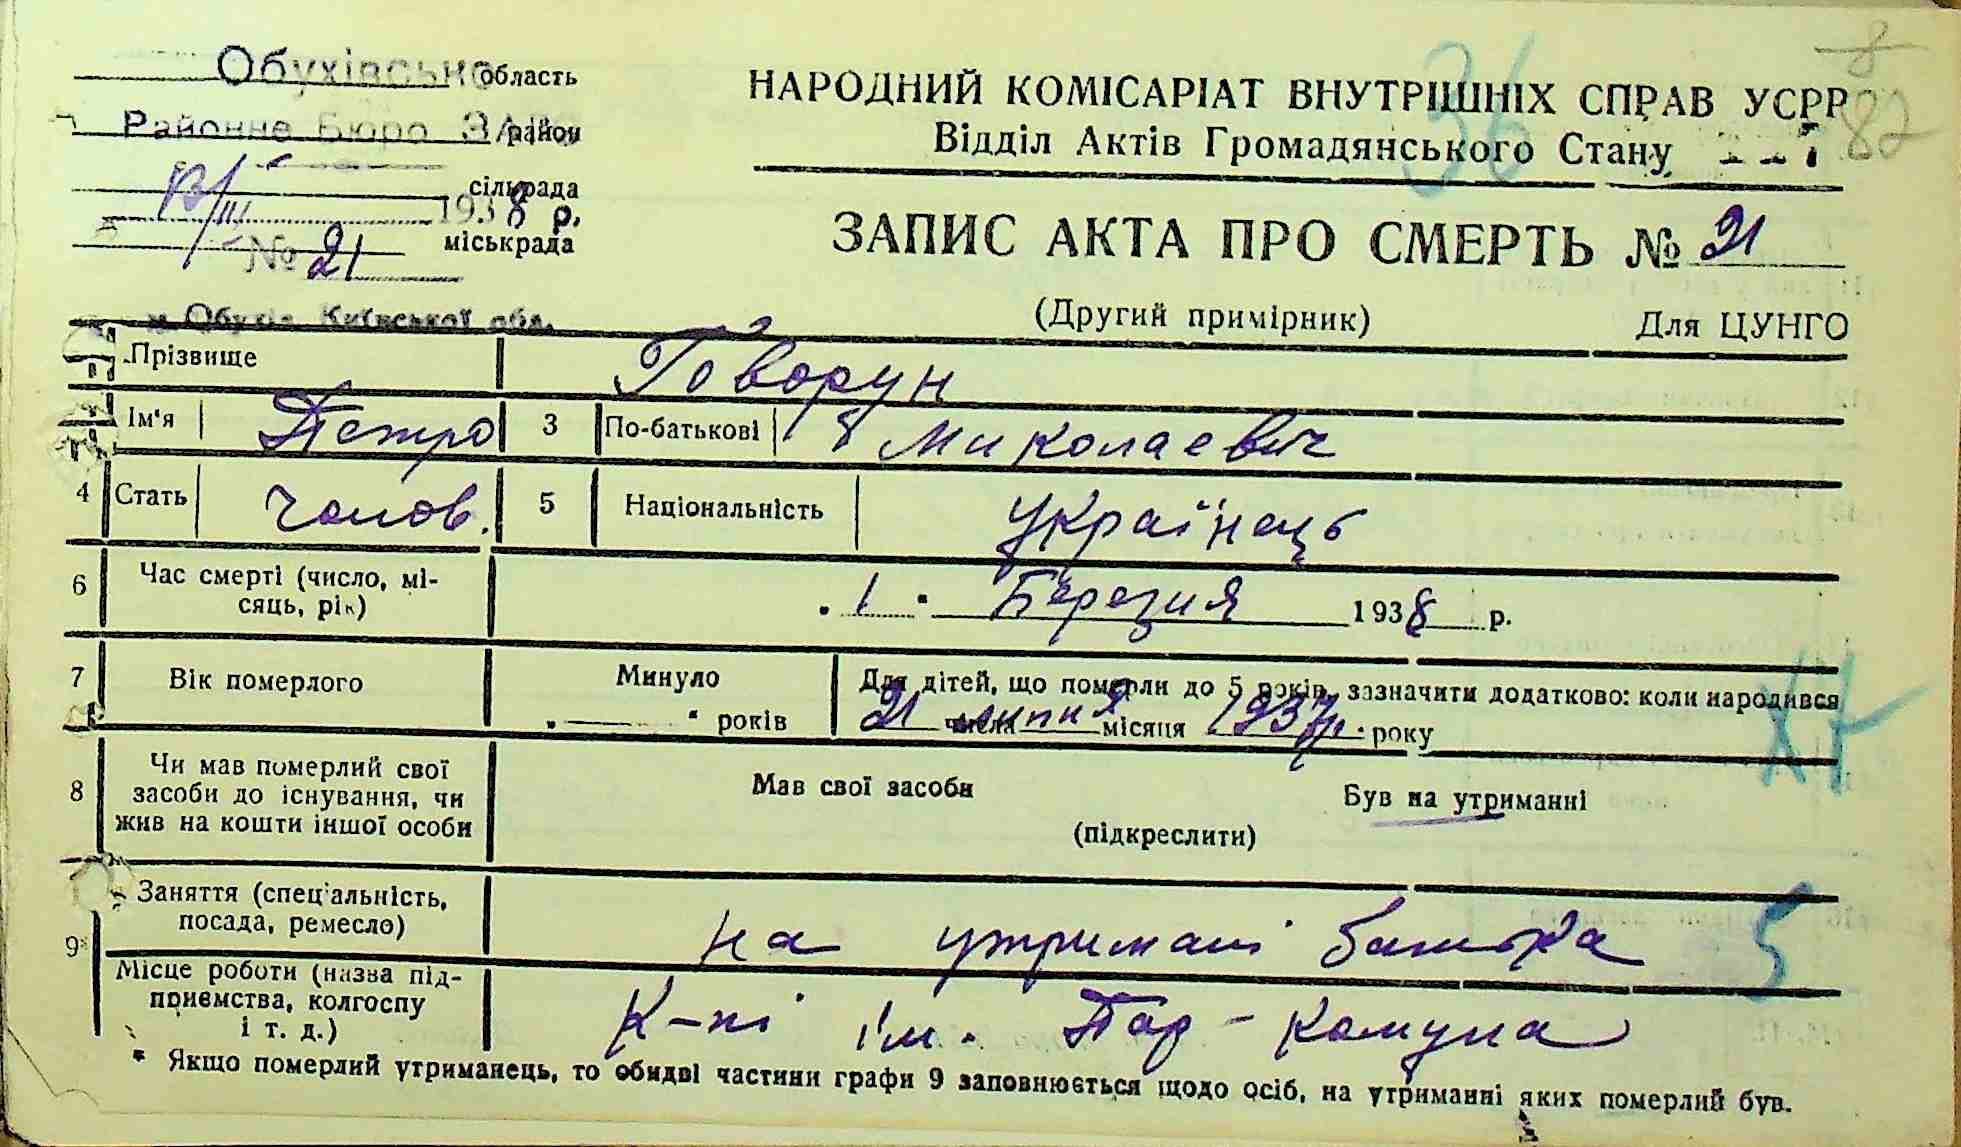 Обухівське область
Районне Бюро ЗАГС район
сільрада
13/III 1938 р.
міськрада
№ 21
м. Обухів Київської обл.
36
8
82
НАРОДНИЙ КОМІСАРІАТ ВНУТРІШНІХ СПРАВ УСРР
Відділ Актів Громадянського Стану
ЗАПИС АКТА ПРО СМЕРТЬ № 21
(Другий примірник) Для ЦУНГО
Прізвище Говорун
Ім'я Петро 3 По-батькові Миколаевич
4 Стать Чолов. 5 Національність Українець
6 Час смерті (число, мі-
сяць, рік)
„ 1 “ Березня 1938 р.
7 Вік померлого Минуло
„ — “ років
Для дітей, що померли до 5 років, зазначити додатково: коли народився
21 числа липня місяця 1937 р. року
8 Чи мав померлий свої
засоби до існування, чи
жив на кошти іншої особи
Мав свої засоби Був на утриманні
(підкреслити)
9* Заняття (спеціальність,
посада, ремесло)
на утримані батька
5
Місце роботи (назва під-
приємства, колгоспу
і т. д.)
К-пі ім. Пар-Комуна
* Якщо померлий утриманець, то обидві частини графи 9 заповнюється щодо осіб, на утриманні яких померлий був.